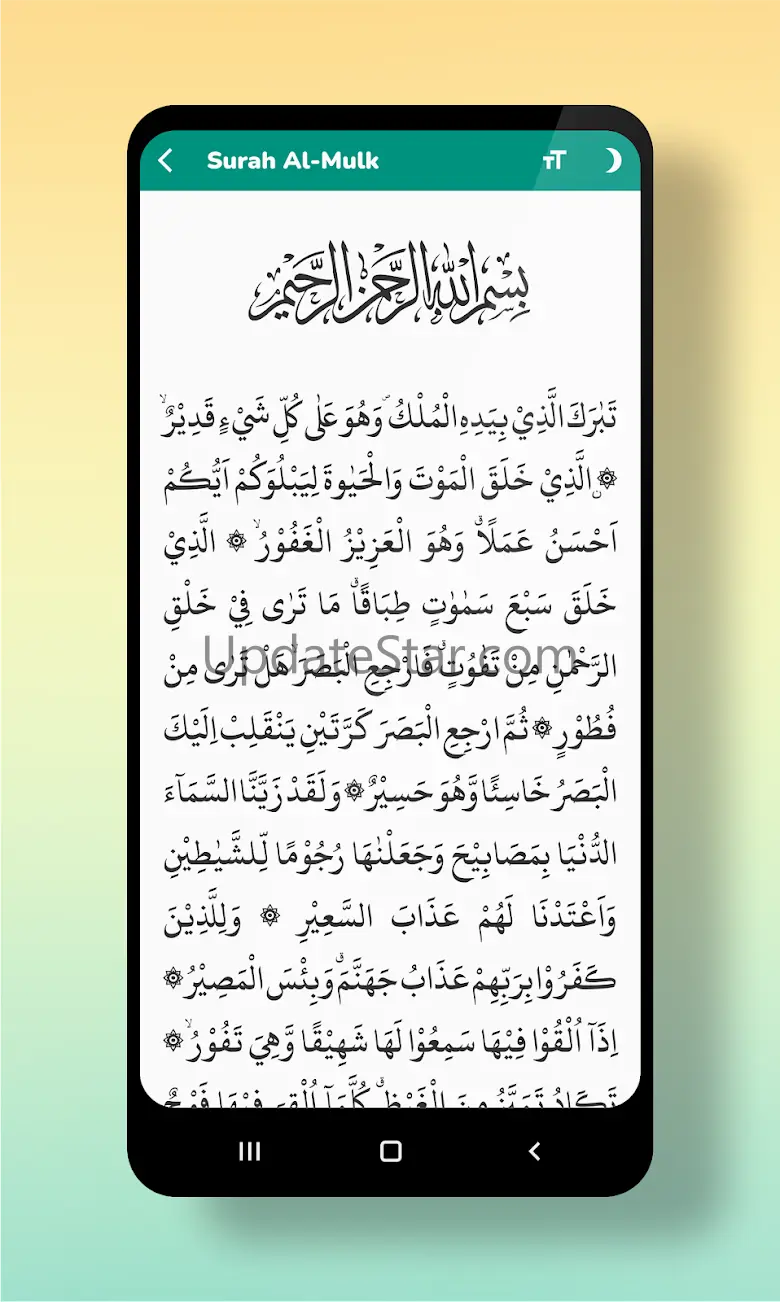 Surah Al-Mulk
TT
بِسْمِ اللّٰهِ الرَّحْمٰنِ الرَّحِيْمِ
تَبٰرَكَ الَّذِيْ بِيَدِهِ الْمُلْكُ ۖ وَهُوَ عَلٰى كُلِّ شَيْءٍ قَدِيْرٌ ۙ
۞ ۨالَّذِيْ خَلَقَ الْمَوْتَ وَالْحَيٰوةَ لِيَبْلُوَكُمْ اَيُّكُمْ
اَحْسَنُ عَمَلًا ۗ وَهُوَ الْعَزِيْزُ الْغَفُوْرُ ۙ ۞ الَّذِيْ
خَلَقَ سَبْعَ سَمٰوٰتٍ طِبَاقًا ۗ مَا تَرٰى فِيْ خَلْقِ
الرَّحْمٰنِ مِنْ تَفٰوُتٍ ۗ فَارْجِعِ الْبَصَرَ ۙ هَلْ تَرٰى مِنْ
UpdateStar.com
فُطُوْرٍ ۞ ثُمَّ ارْجِعِ الْبَصَرَ كَرَّتَيْنِ يَنْقَلِبْ اِلَيْكَ
الْبَصَرُ خَاسِئًا وَّهُوَ حَسِيْرٌ ۞ وَلَقَدْ زَيَّنَّا السَّمَاۤءَ
الدُّنْيَا بِمَصَابِيْحَ وَجَعَلْنٰهَا رُجُوْمًا لِّلشَّيٰطِيْنِ
وَاَعْتَدْنَا لَهُمْ عَذَابَ السَّعِيْرِ ۞ وَلِلَّذِيْنَ
كَفَرُوْا بِرَبِّهِمْ عَذَابُ جَهَنَّمَ ۗ وَبِئْسَ الْمَصِيْرُ ۞
اِذَآ اُلْقُوْا فِيْهَا سَمِعُوْا لَهَا شَهِيْقًا وَّهِيَ تَفُوْرُ ۙ ۞
تَكَادُ تَمَيَّزُ مِنَ الْغَيْظِ ۗ كُلَّمَآ اُلْقِيَ فِيْهَا فَوْجٌ